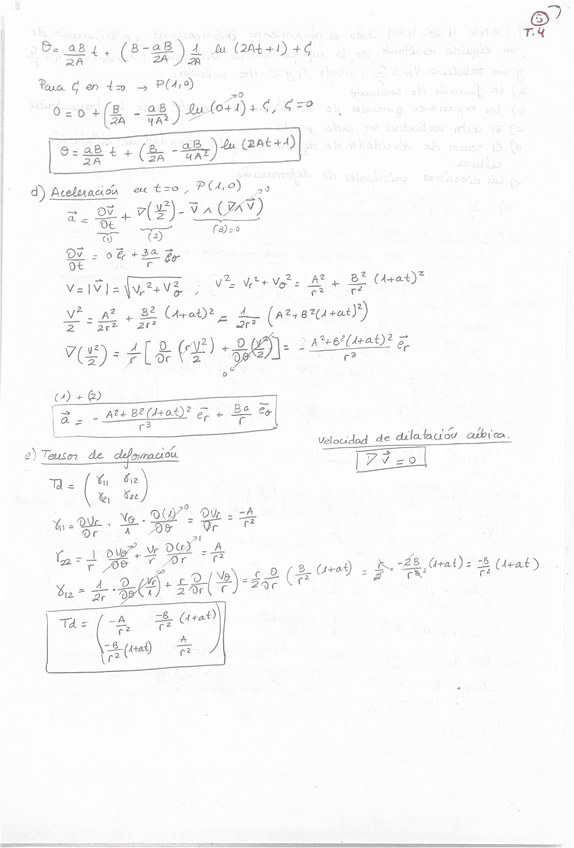 5
T.4
θ = aB/2A t + (B - aB/2A) 1/2A ln (2At+1) + ζ
Para ζ en t=0 → P(1,0)
0 = 0 + (B/2A - aB/4A²) ln (0+1)→0 + ζ, ζ=0
θ = aB/2A t + (B/2A - aB/4A²) ln (2At+1)
d) Aceleración en t=0, P(1,0)
a⃗ = ∂v⃗/∂t + ∇(v²/2) - v⃗ ∧ (∇∧v⃗)→0
(1) (2) (3)=0
∂v⃗/∂t = 0 e⃗r + Ba/r e⃗θ
V = |V⃗| = √(Vr² + Vθ²) ; V² = Vr² + Vθ² = A²/r² + B²/r² (1+at)²
V²/2 = A²/2r² + B²/2r² (1+at)² = 1/2r² (A² + B²(1+at)²)
∇(v²/2) = 1/r [∂/∂r (rV²/2) + ∂/∂θ (V²/2)→0] = - A²+B²(1+at)²/r³ e⃗r
(1) + (2)
a⃗ = - A²+B²(1+at)²/r³ e⃗r + Ba/r e⃗θ
Velocidad de dilatación cúbica.
∇V⃗ = 0
e) Tensor de deformación
Td = (γ11 γ12
γ21 γ22)
γ11 = ∂Vr/∂r + Vθ/1 · ∂(1)/∂θ→0 = ∂Vr/∂r = -A/r²
γ22 = 1/r ∂Vθ/∂θ→0 + Vr/r ∂(r)/∂r→1 = A/r²
γ12 = 1/2r · ∂/∂θ (Vr/1)→0 + r/2 ∂/∂r (Vθ/r) = r/2 ∂/∂r (B/r² (1+at) = r/2 · -2B/r³ (1+at) = -B/r² (1+at)
Td = (-A/r² -B/r² (1+at)
-B/r² (1+at) A/r²)